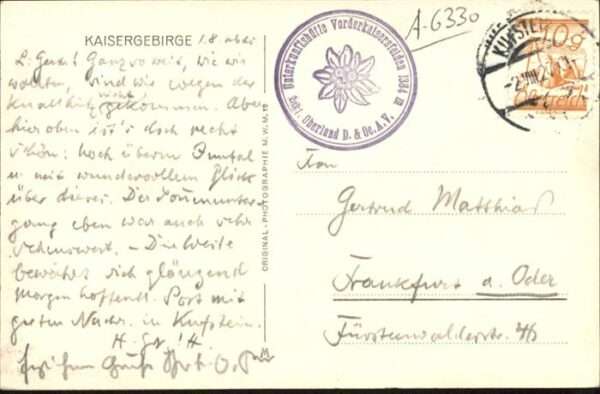 KAISERGEBIRGE 1.8. abds
L. Gerda! Ganz so weit, wie wir
wollten, sind wir wegen der
Knallhitz nicht gekommen. Aber
hier oben ist's doch recht
schön: hoch überm Inntal
u. mit wundervollem Blick
über dieses. Der Sonnenunter-
gang eben war auch sehr
sehenswert. – Die Weste
bewährt sich glänzend
Morgen hoffentl. Post mit
guten Nachr. in Kufstein.
ORIGINAL-PHOTOGRAPHIE M.W.M.
Unterkunftshütte Vorderkaiserfelden 1384 m
Sekt. Oberland D. & Oe. A. V.
A-6330
KUFSTEIN
Frau
Gertrud Matthias
Frankfurt a. Oder
Fürstenwalderstr.